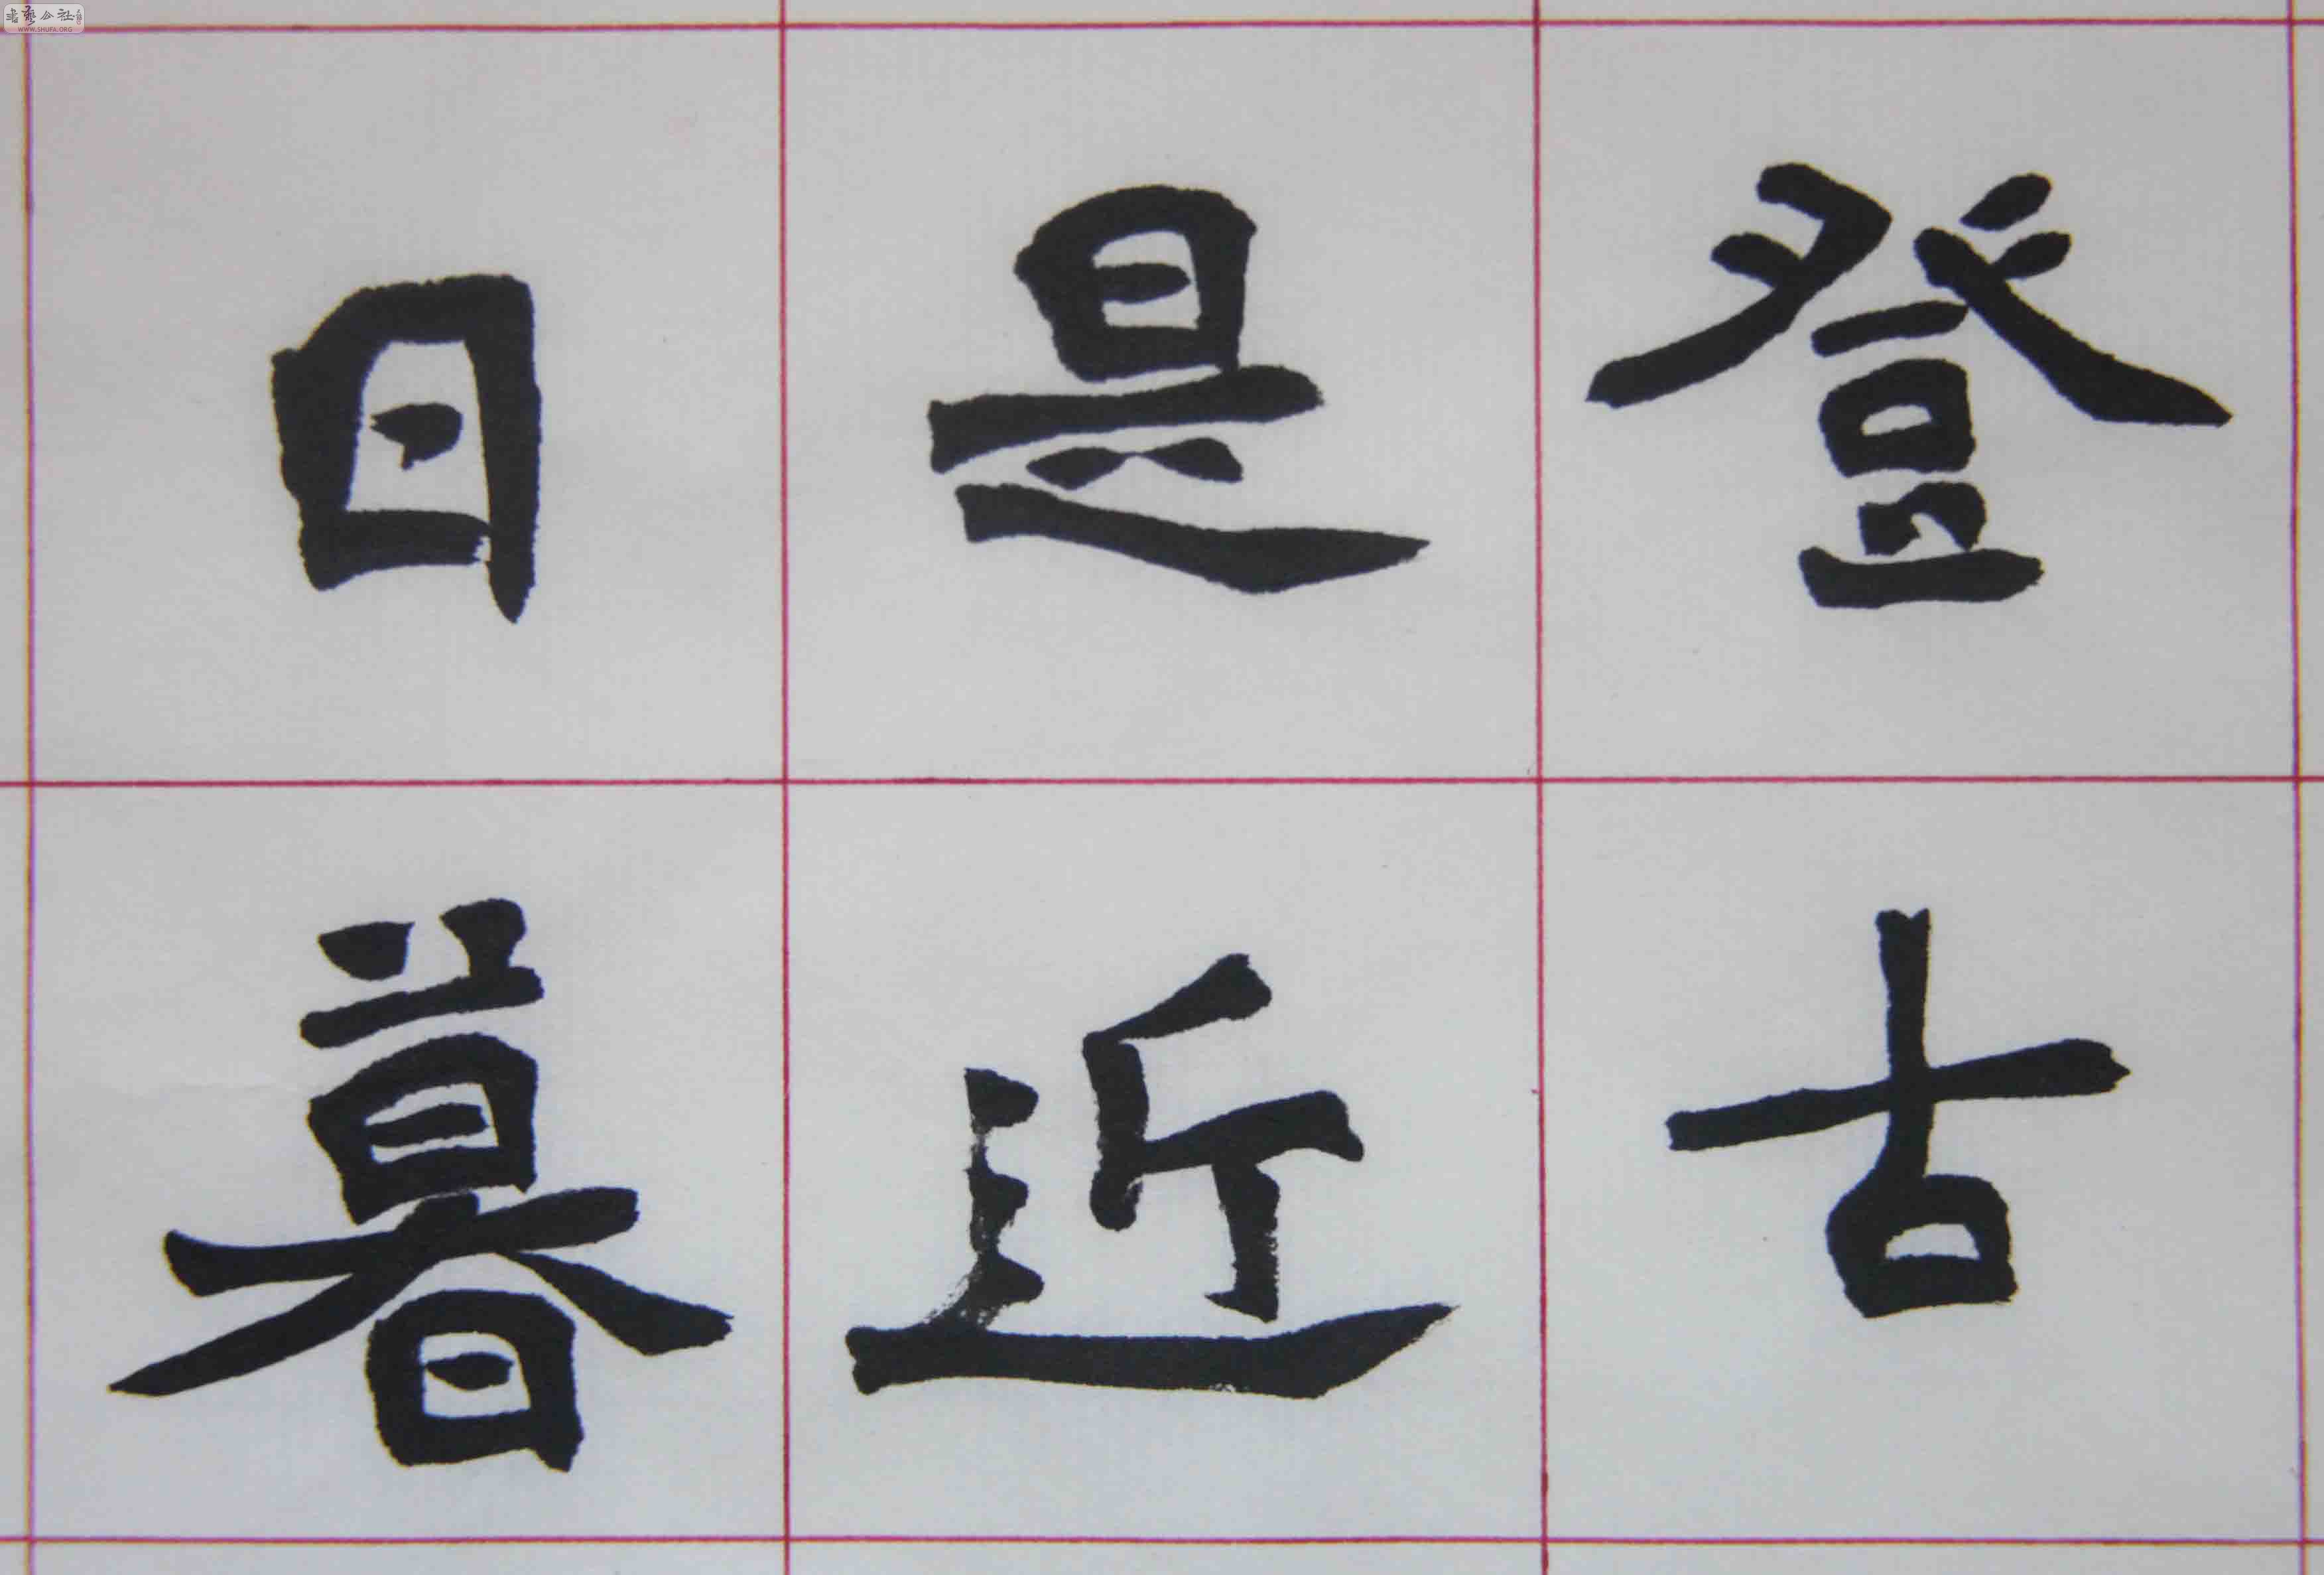 登古
是近
日暮
書藝公社
WWW.SHUFA.ORG